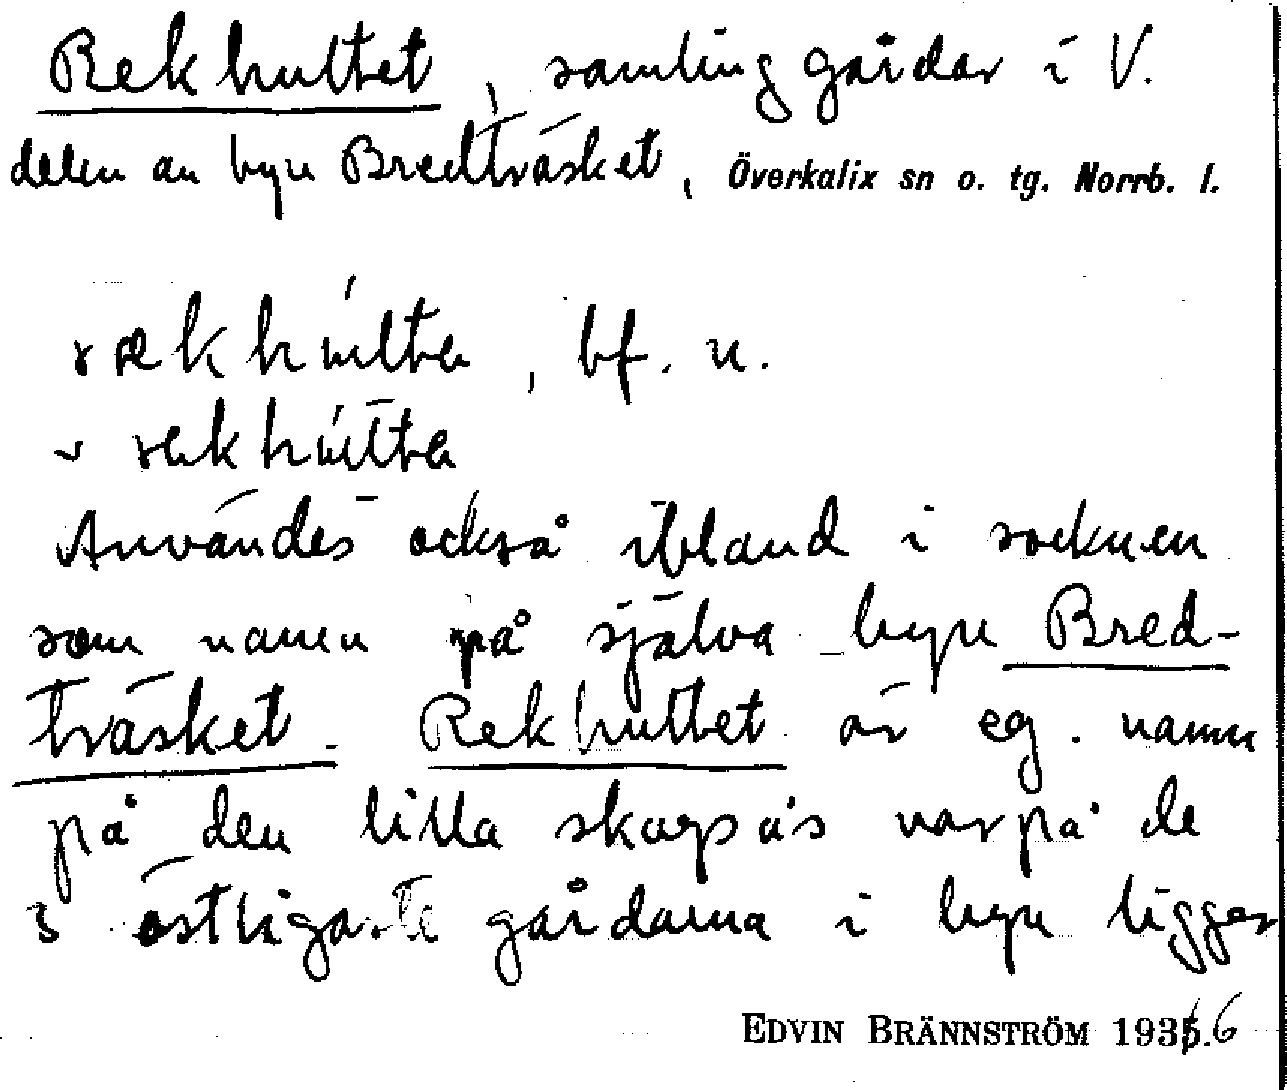 Rekhuttet, samling gårdar i V.
delen av byn Bredträsket, Överkalix sn o. tg. Norrb. l.
bf. n.
Användes också ibland i socknen
som namn på själva byn Bred-
träsket. Rekhuttet är eg. namn
på den lilla skogsås varpå de
3 östligaste gårdarna i byn ligger
EDVIN BRÄNNSTRÖM 1936